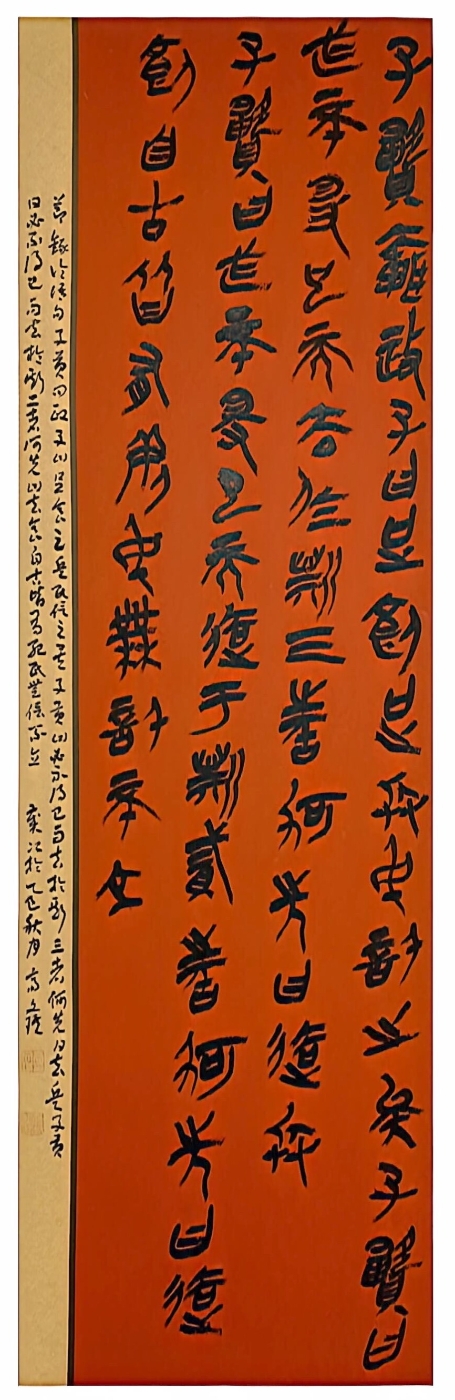 子貢問政子曰足食足兵民信之矣子貢曰
必不得已而去於斯三者何先曰去兵
子貢曰必不得已而去於斯貳者何先曰去
食自古皆有死民無信不立
節錄論語句子貢問政子曰足食足兵民信之矣子貢曰必不得已而去於斯三者何先曰去兵子貢
曰必不得已而去於斯二者何先曰去食自古皆有死民無信不立 於乙巳秋月 高文